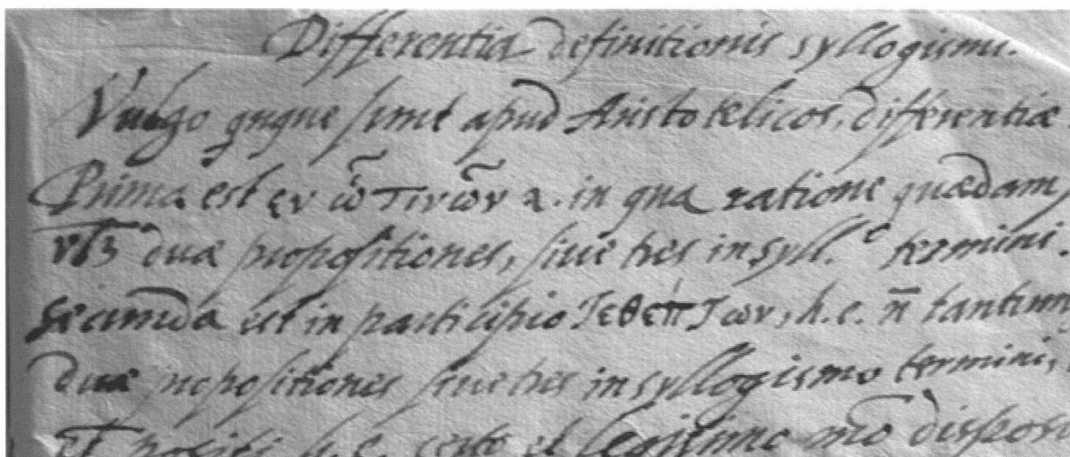 Differentia definitionis syllogismi.
Vulgo quque sunt apud Aristotelicos, differentiæ.
Prima est εν ῷ τινῶν 2. in qua ratione quædam,
duæ propositiones, siue tres in syll.ᶜ termini.
secunda est in participio h. e. n̄ tantum
duæ propositiones siue tres in syllogismo termini,
et positi h. e. certo et legitimo mo͞ disposi